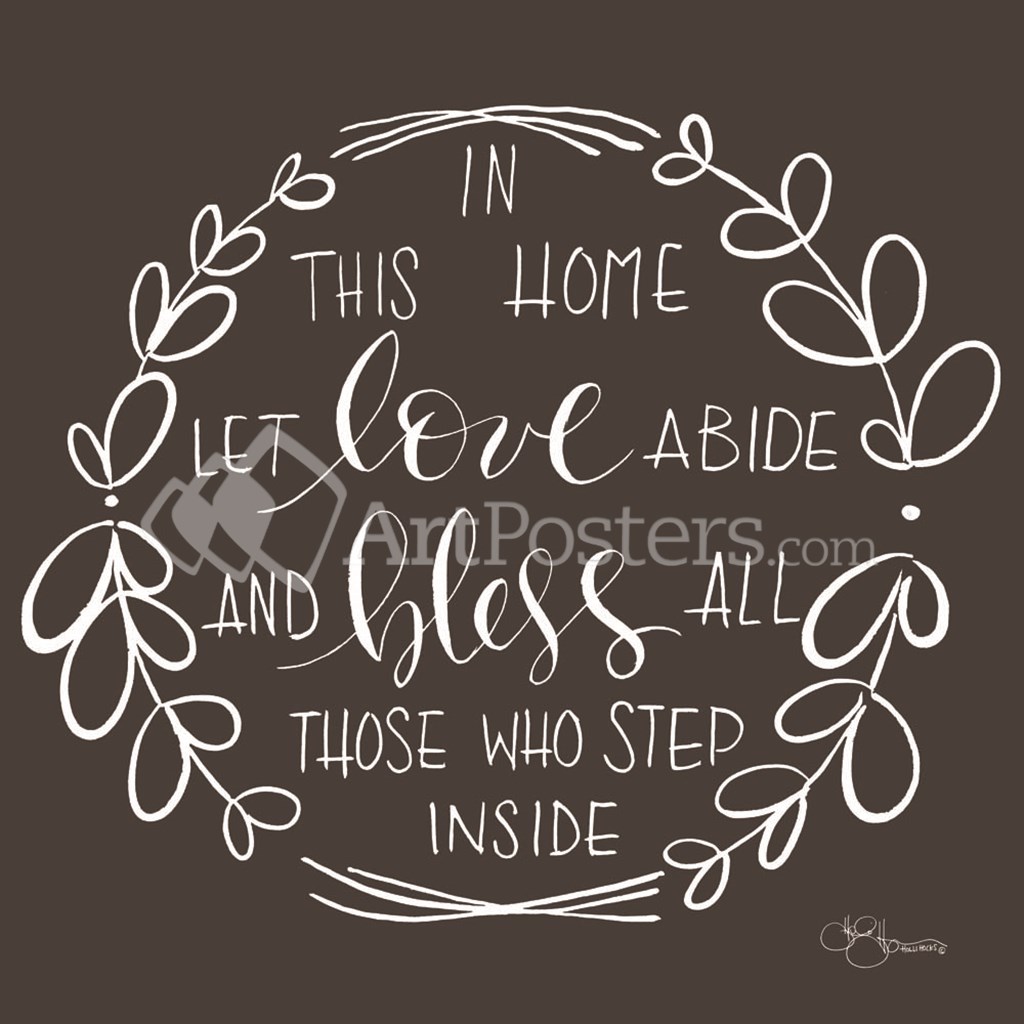 IN
THIS HOME
LET love ABIDE
ArtPosters.com
AND bless ALL
THOSE WHO STEP
INSIDE
HOLLIHOCKS ©